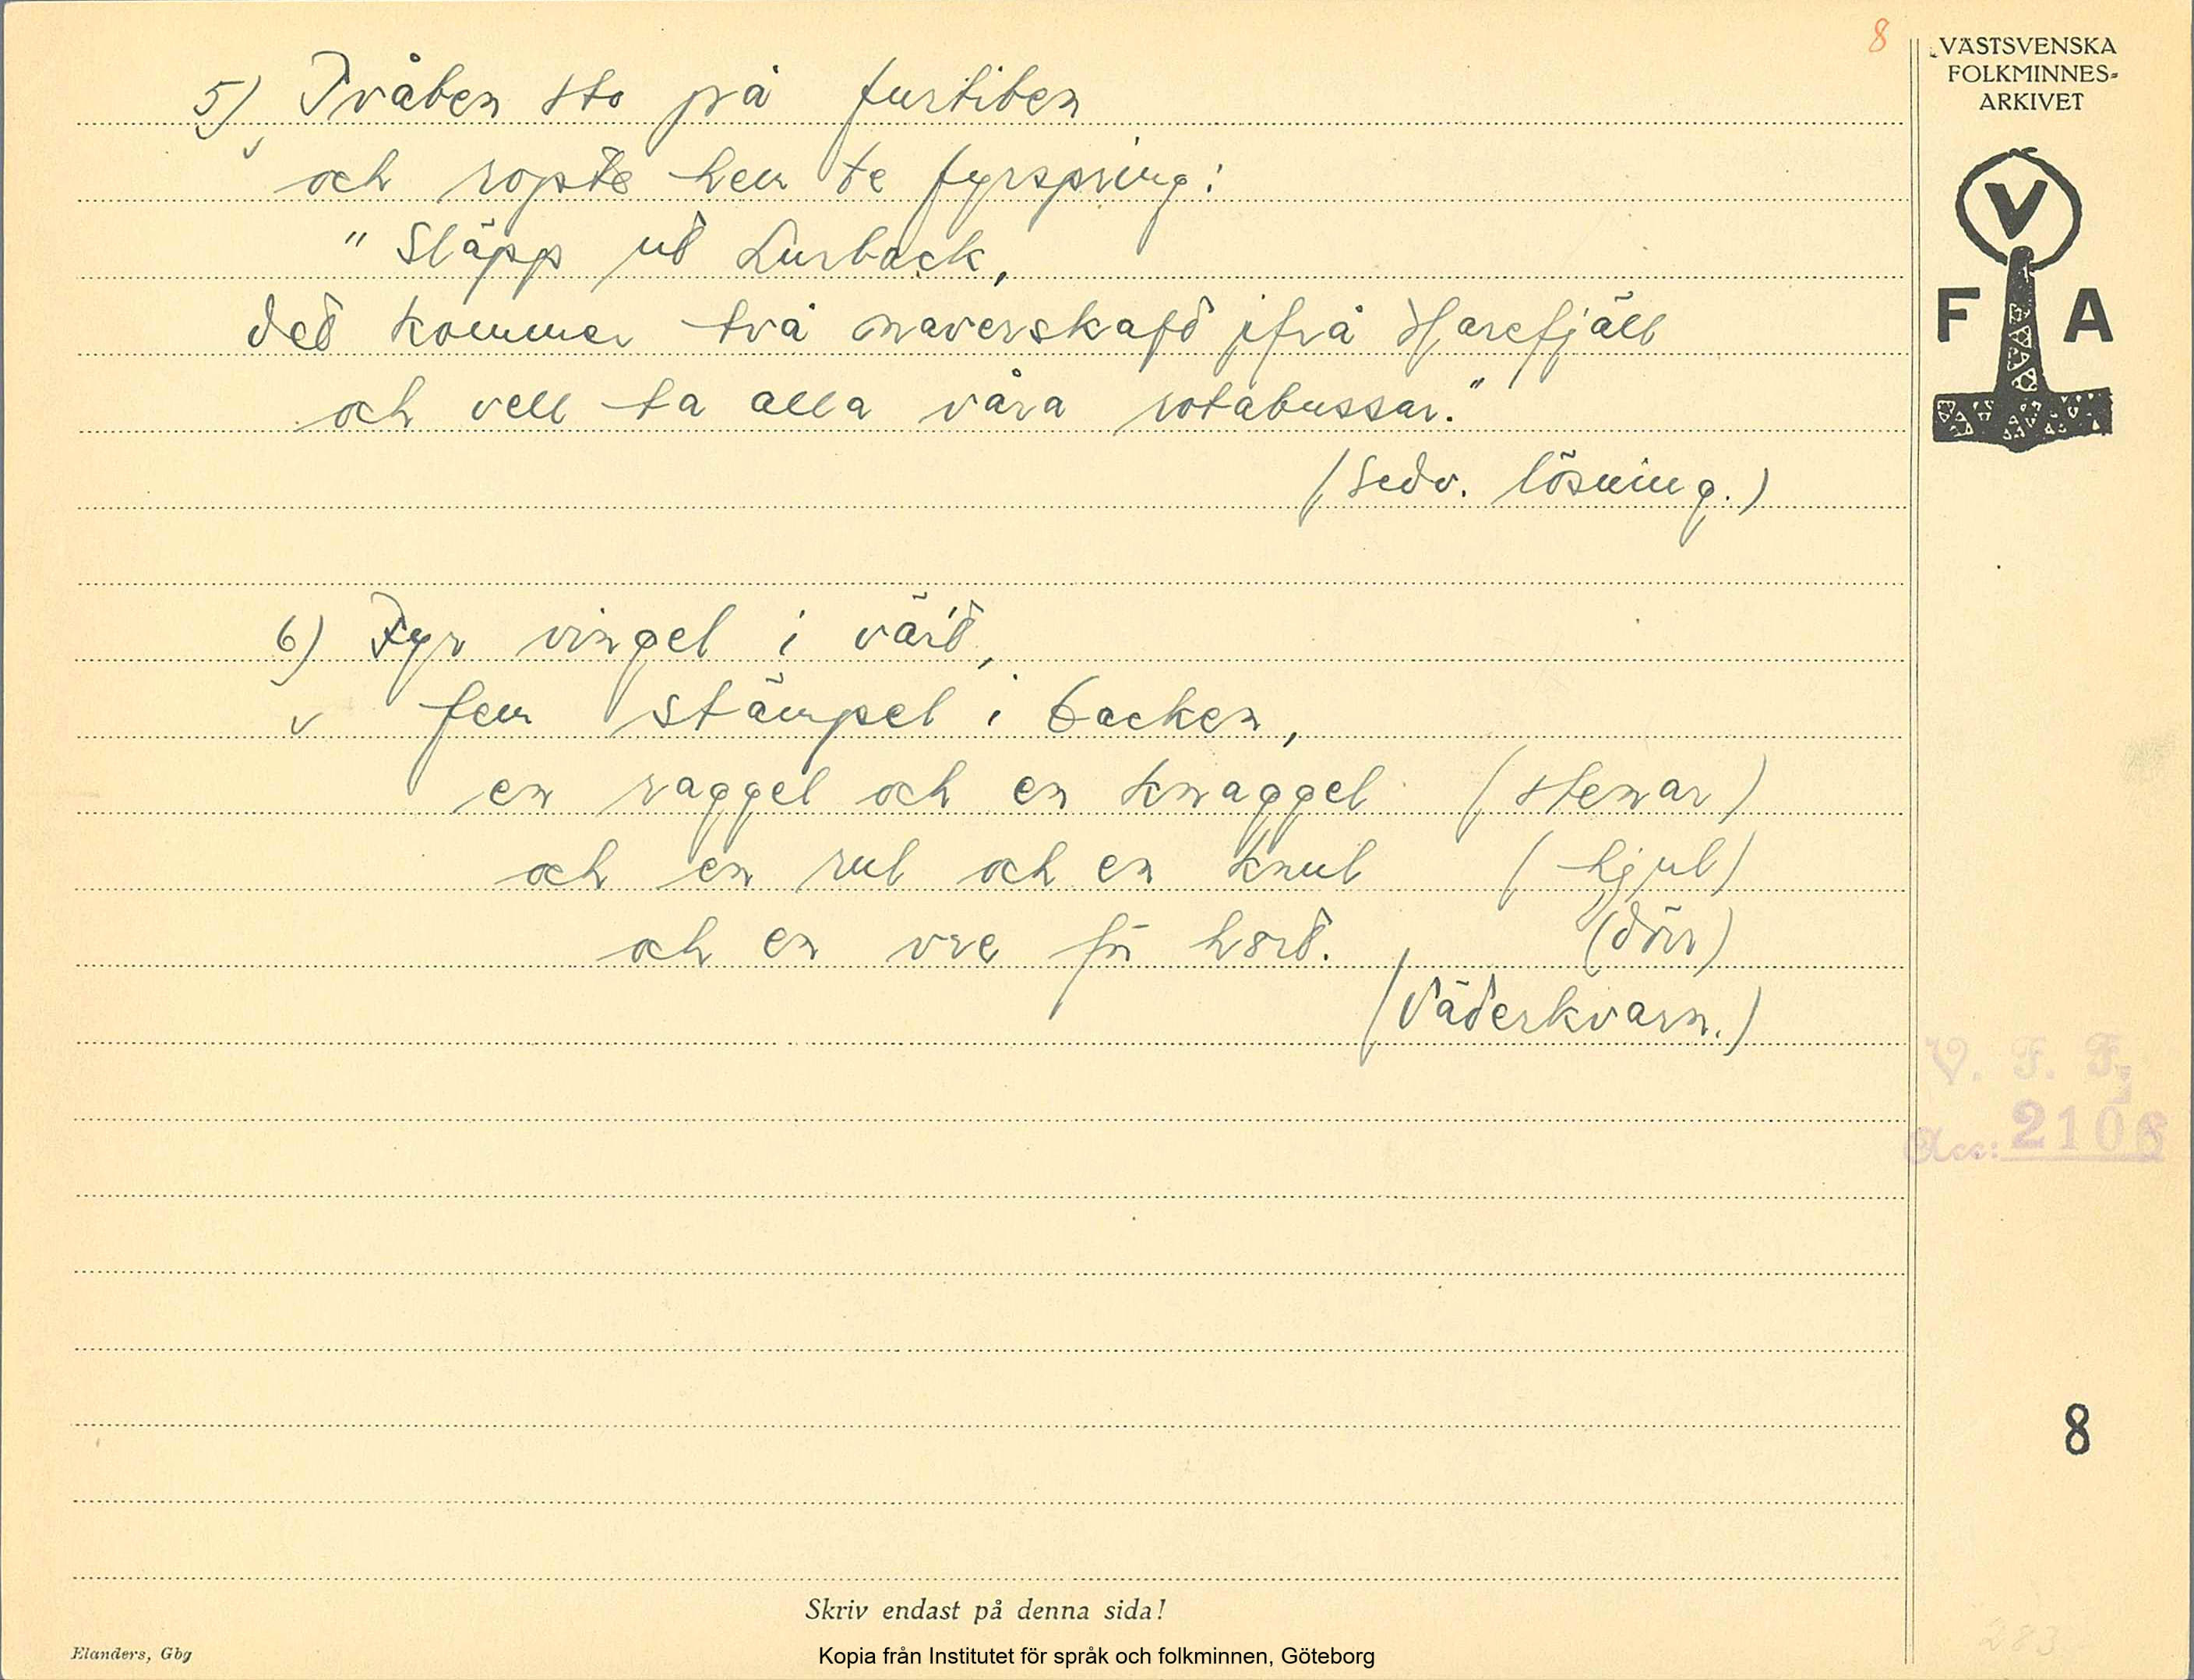 8
VÄSTSVENSKA
FOLKMINNES-
ARKIVET
V
F A
5) Tvåben sto på furtiben
och ropte hem te fyrspring:
"Släpp ud Lurback,
ded kommer två naverskafd ifrå Harefjäll
och vell ta alla våra rotabussar."
(Sedv. lösning.)
6) Fyr vingel i
fem stämpel i backen,
en raggel och en knaggel (stenar)
och en rul och en knul (hjul)
och en vre för (dörr)
(Väderkvarn.)
V. F. F.
Acc: 2106
8
283
Skriv endast på denna sida!
Elanders, Gbg
Kopia från Institutet för språk och folkminnen, Göteborg